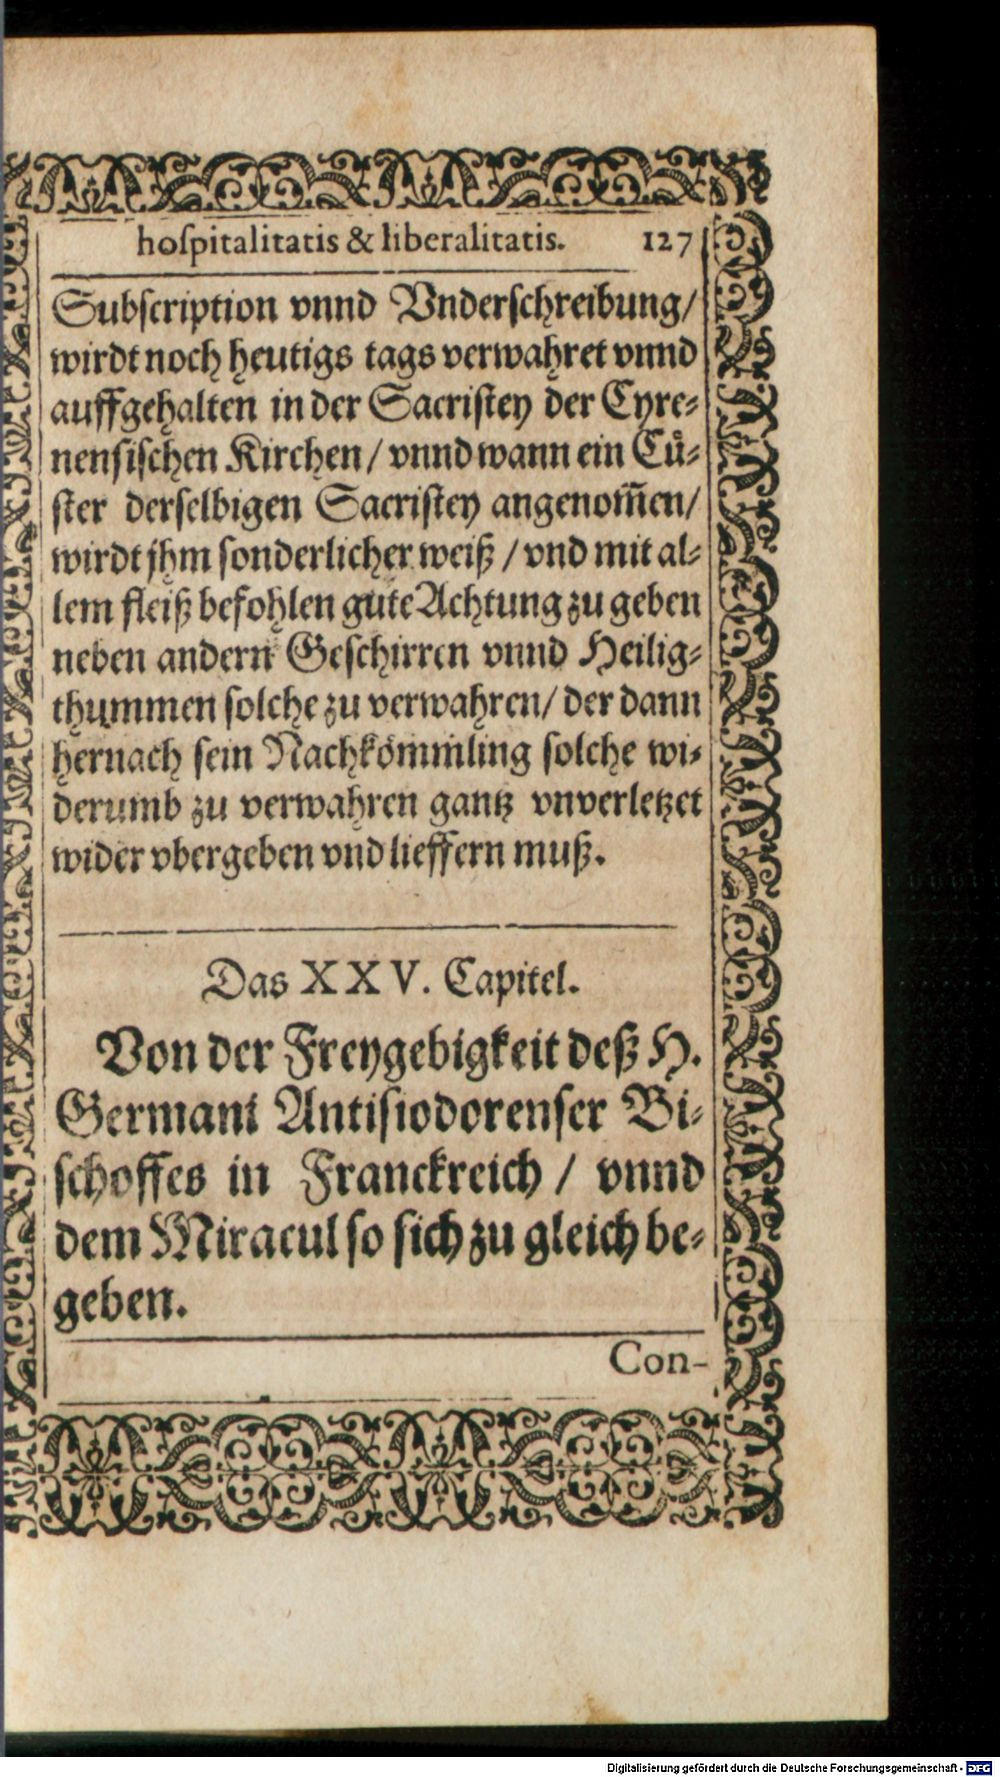 hoſpitalitatis & liberalitatis. 127
Subſcription vnnd Vnderſchreibung/
wirdt noch heutigs tags verwahret vnnd
auffgehalten in der Sacriſtey der Cyre-
nenſiſchen Kirchen / vnnd wann ein Cuͤ-
ſter derſelbigen Sacriſtey angenom̃en/
wirdt jhm ſonderlicher weiß / vnd mit al-
lem fleiß befohlen gute Achtung zu geben
neben andern Geſchirren vnnd Heilig-
thummen ſolche zu verwahren/ der dann
hernach ſein Nachkoͤmmling ſolche wi-
derumb zu verwahren gantz vnverletzet
wider vbergeben vnd lieffern muß.
Das XXV. Capitel.
Von der Freygebigkeit deß H.
Germani Antiſiodorenſer Bi-
ſchoffes in Franckreich / vnnd
dem Miracul ſo ſich zu gleich be-
geben.
Con-
Digitalisierung gefördert durch die Deutsche Forschungsgemeinschaft - DFG